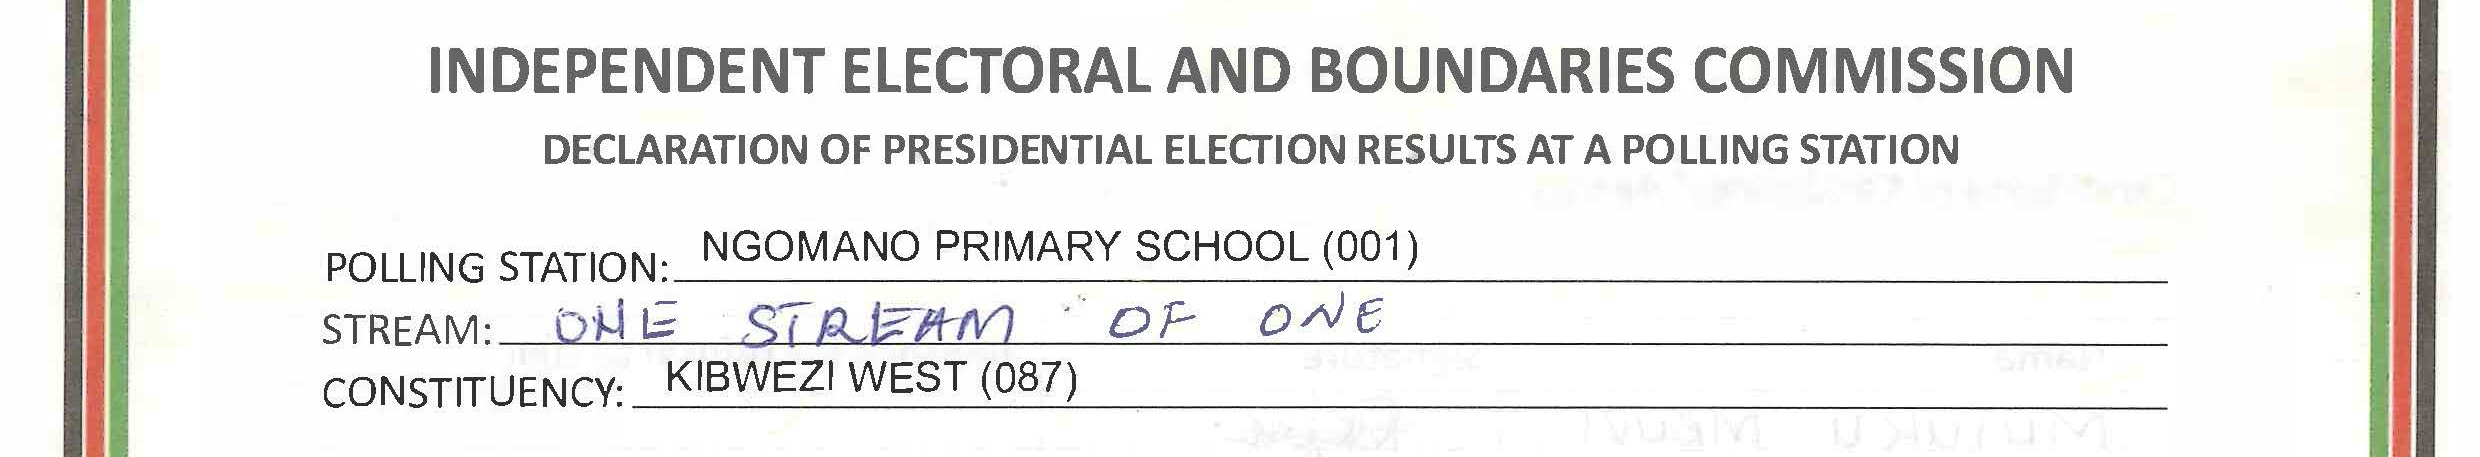 INDEPENDENT ELECTORAL AND BOUNDARIES COMMISSION
DECLARATION OF PRESIDENTIAL ELECTION RESULTS AT A POLLING STATION
POLLING STATION: NGOMANO PRIMARY SCHOOL (001)
STREAM: ONE STREAM OF ONE
CONSTITUENCY: KIBWEZI WEST (087)